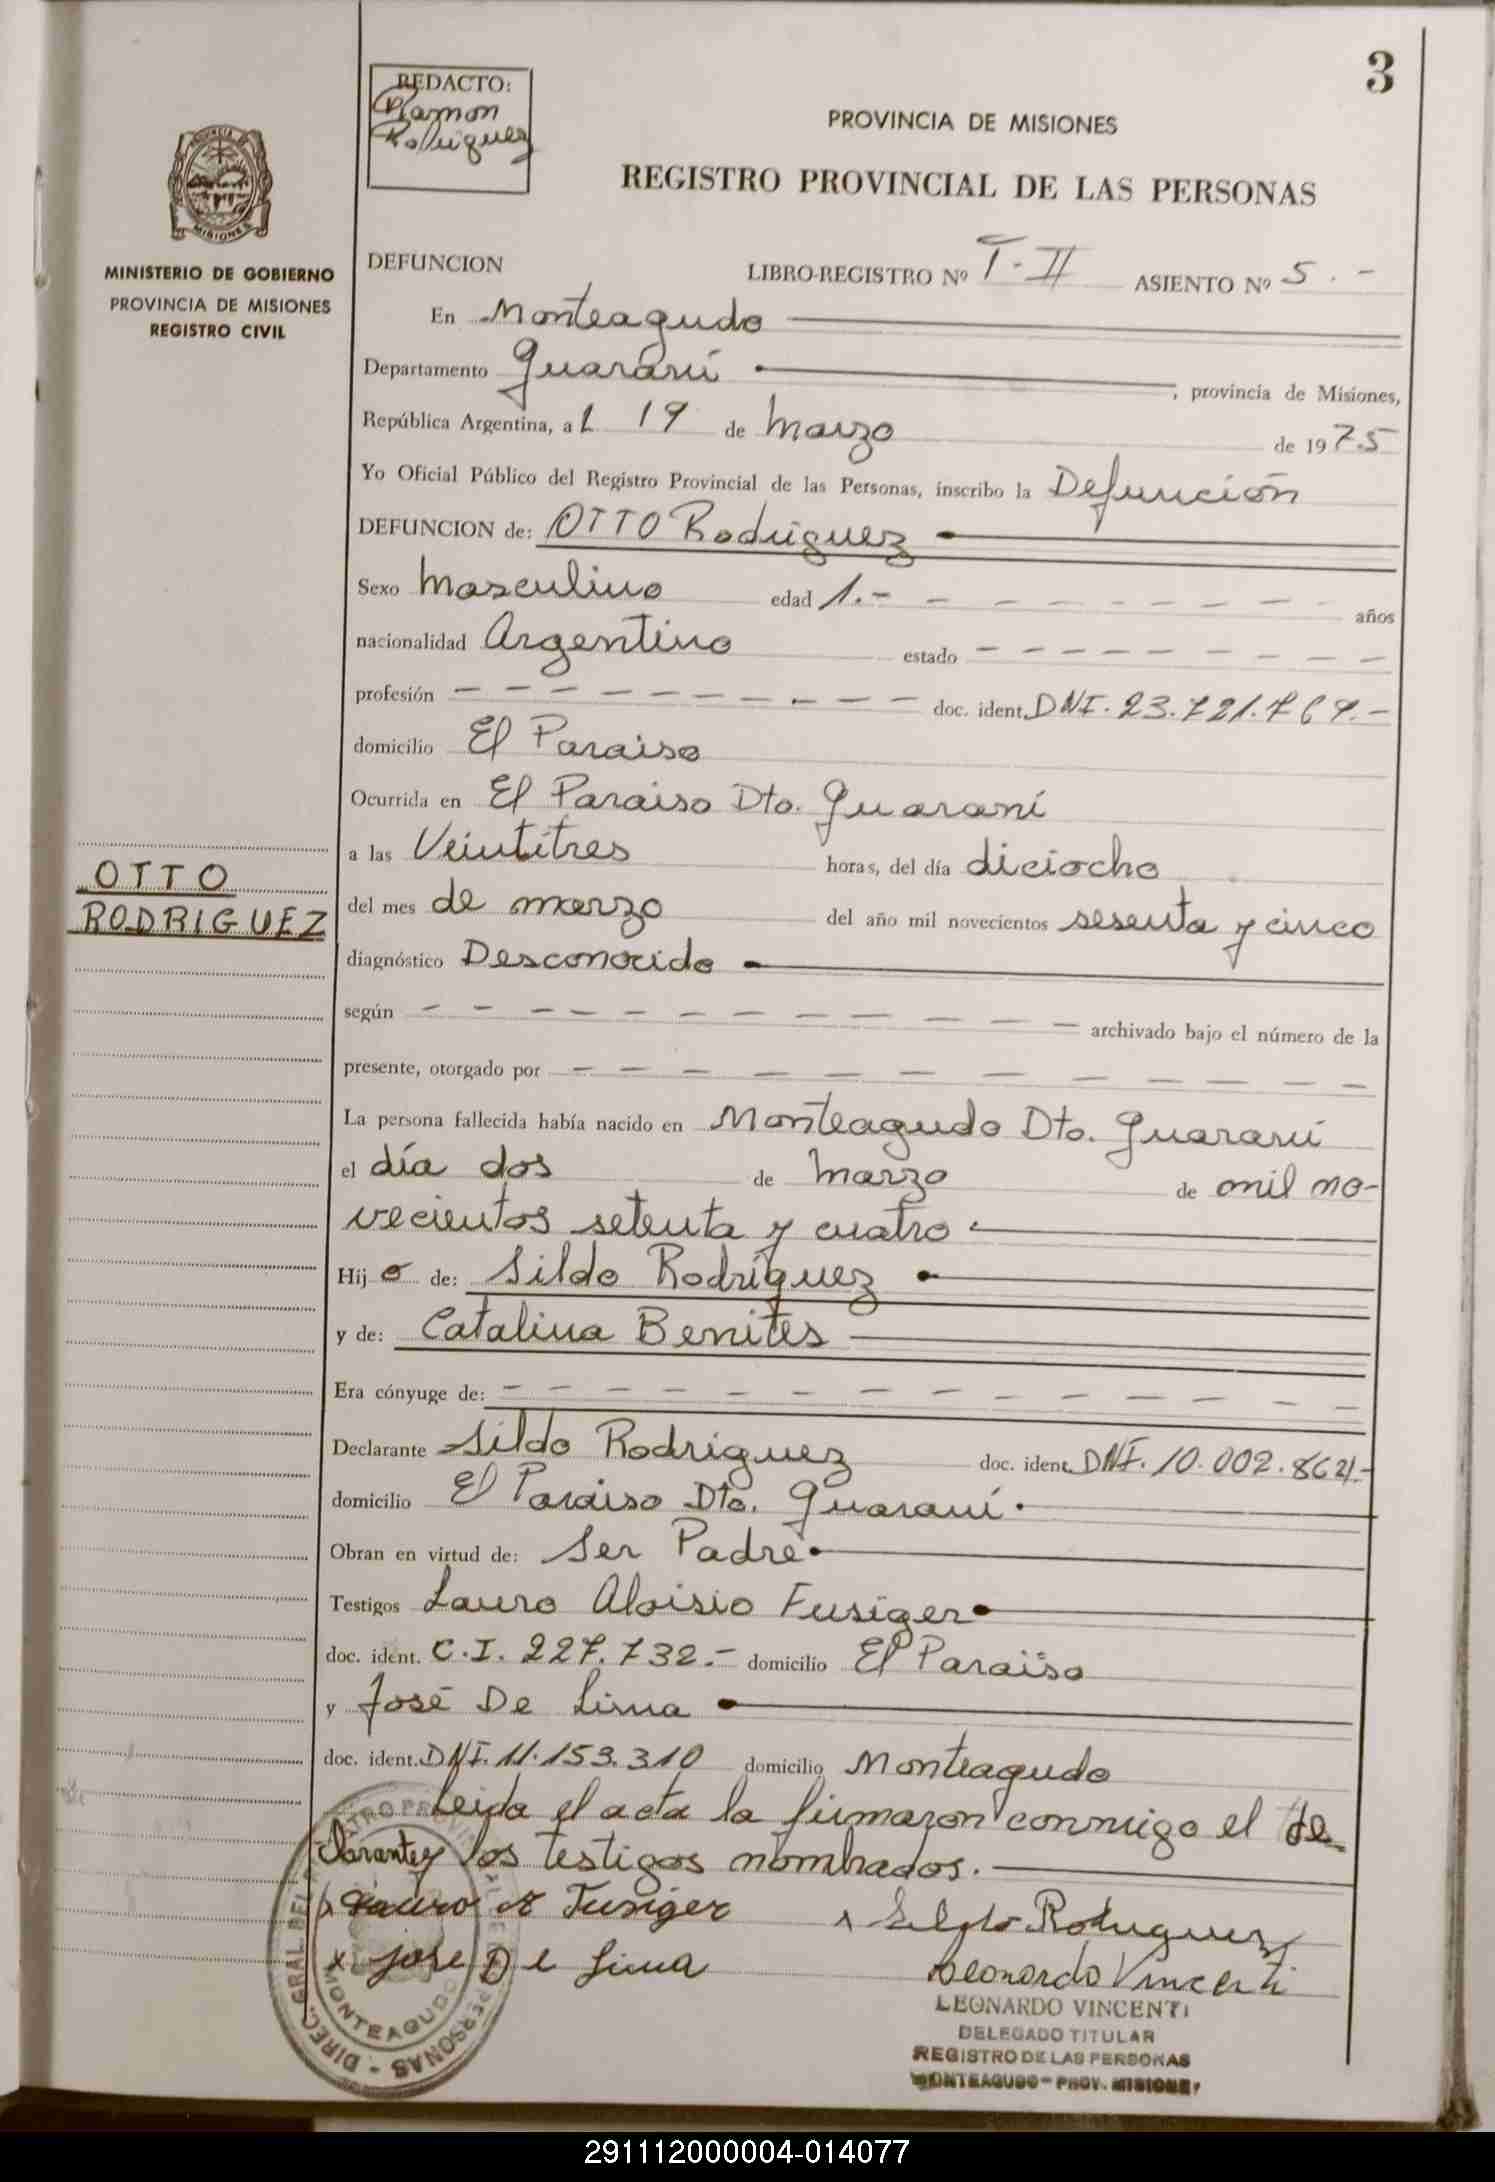 3
REDACTO:
Ramon
Rodriguez
PROVINCIA DE MISIONES
REGISTRO PROVINCIAL DE LAS PERSONAS
PROVINCIA DE
MISIONES
MINISTERIO DE GOBIERNO
PROVINCIA DE MISIONES
REGISTRO CIVIL
DEFUNCION LIBRO-REGISTRO Nº T-II ASIENTO Nº 5.-
En Monteagudo
Departamento Guaraní, provincia de Misiones,
República Argentina, al 19 de Marzo de 1975
Yo Oficial Público del Registro Provincial de las Personas, inscribo la Defunción
DEFUNCION de: OTTO Rodriguez
Sexo Masculino edad 1.- - - - - - - - años
nacionalidad Argentino estado - - - - - - - - -
profesión - - - - - - - - - - doc. ident. DNI. 23.721.767.-
domicilio El Paraiso
Ocurrida en El Paraiso Dto. Guaraní
a las Veintitres horas, del día diciocho
del mes de marzo del año mil novecientos sesenta y cinco
diagnóstico Desconocido
según - - - - - - - - - - - - - archivado bajo el número de la
presente, otorgado por - - - - - - - - - - - -
La persona fallecida había nacido en Monteagudo Dto. Guaraní
el día dos de Marzo de mil no-
vecientos setenta y cuatro.
Hijo de: Sildo Rodríguez
y de: Catalina Benites
OTTO
RODRIGUEZ
Era cónyuge de: - - - - - - - - - - - - - -
Declarante Sildo Rodriguez doc. ident. DNI. 10.002.862.-
domicilio El Paraiso Dto. Guaraní.
Obran en virtud de: Ser Padre
Testigos Lauro Aloisio Fusiger
doc. ident. C.I. 227.732.- domicilio El Paraiso
y José De Lima
doc. ident. DNI. 11.153.310 domicilio Monteagudo
Leida el acta la firmaron conmigo el de-
clarante y los testigos nombrados.
x Lauro A Fusiger x Sildo Rodriguez
x Jose De Lima Leonardo Vincenti
LEONARDO VINCENTI
DELEGADO TITULAR
REGISTRO DE LAS PERSONAS
MONTEAGUDO - PROV. MISIONES
MONTEAGUDO
291112000004-014077